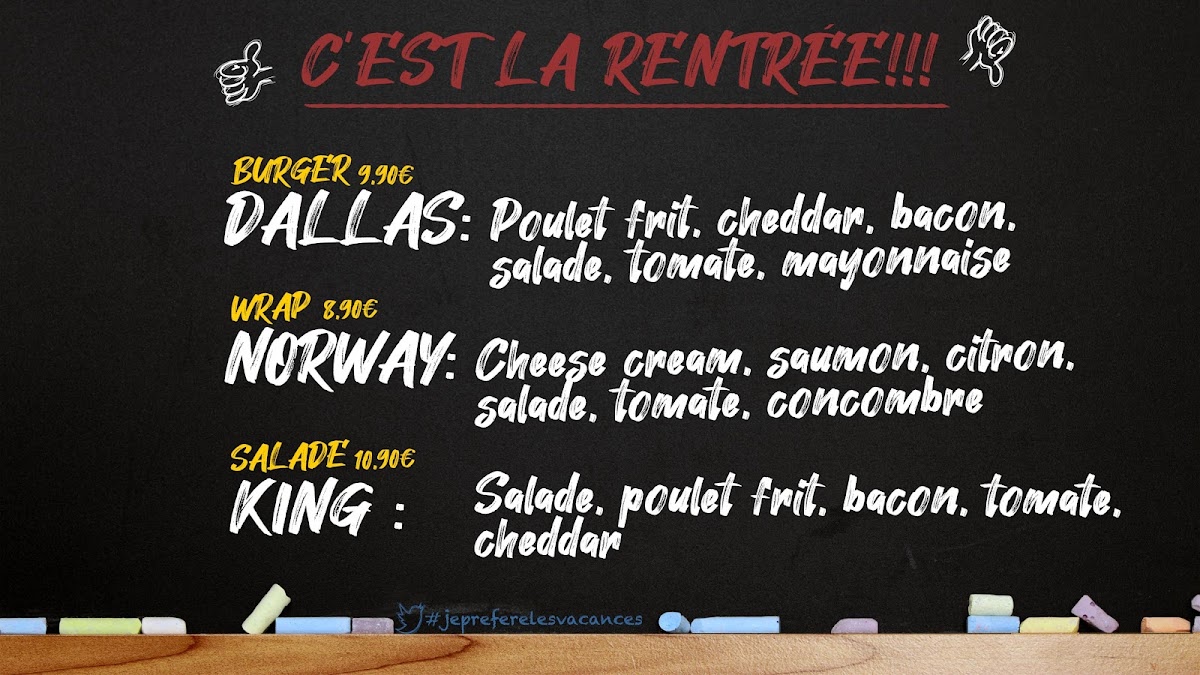 C'EST LA RENTRÉE!!!
BURGER 9.90€
DALLAS: Poulet frit, cheddar, bacon,
salade, tomate, mayonnaise
WRAP 8.90€
NORWAY: Cheese cream, saumon, citron,
salade, tomate, concombre
SALADE 10.90€
KING : Salade, poulet frit, bacon, tomate,
cheddar
#jepreferelesvacances